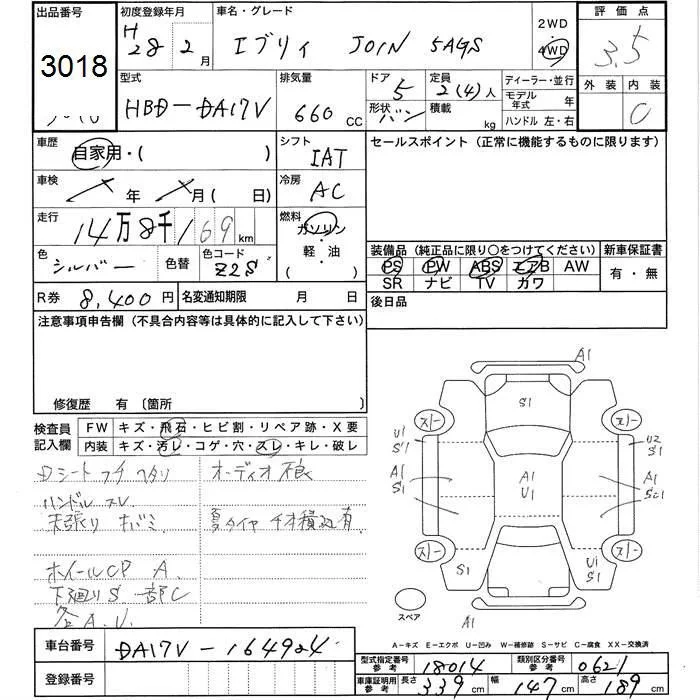 出品番号 初度登録年月 車名・グレード 2WD 評価点
3018 H28 2月 エブリィ JOIN 5AGS 4WD 3.5
型式 排気量 ドア 定員 ディーラー・並行 外装 内装
HBD-DA17V 660 CC 5 2(4)人 モデル年式 年 C
形状 バン 積載 kg ハンドル 左・右
車歴 自家用・( ) シフト IAT セールスポイント (正常に機能するものに限ります)
車検 年 月( 日) 冷房 AC
走行 14万8千169 km 燃料 ガソリン 軽・油 ( )
色 シルバー 色替 色コード Z2S
装備品 (純正品に限り○をつけてください) 新車保証書
PS PW ABS エアB AW 有・無
SR ナビ TV カワ
R券 8,400円 名変通知期限 月 日 後日品
注意事項申告欄 (不具合内容等は具体的に記入して下さい)
修復歴 有 〔箇所 〕
検査員記入欄 FW キズ・飛石・ヒビ割・リペア跡・X要
内装 キズ・汚レ・コゲ・穴・スレ・キレ・破レ
Dシート フチ ヘタリ オーディオ欠
ハンドル スレ
夏タイヤ 4本積込有
ホイールCP A
下廻りS 一部C
各A.U.
A1
S1
スチー スチー
U1 S1 U2 S1
A1 S1 A1 U1 A1 S21
スチー スチー
S1 U1 S1
スペア A1
A-キズ E-エクボ U-凹み W-補修跡 S-サビ C-腐食 XX-交換済
車台番号 DA17V-164924
登録番号
型式指定番号 参考 18014 類別区分番号 参考 0621
車庫証明用 参考 長さ 339 cm 幅 147 cm 高さ 189 cm